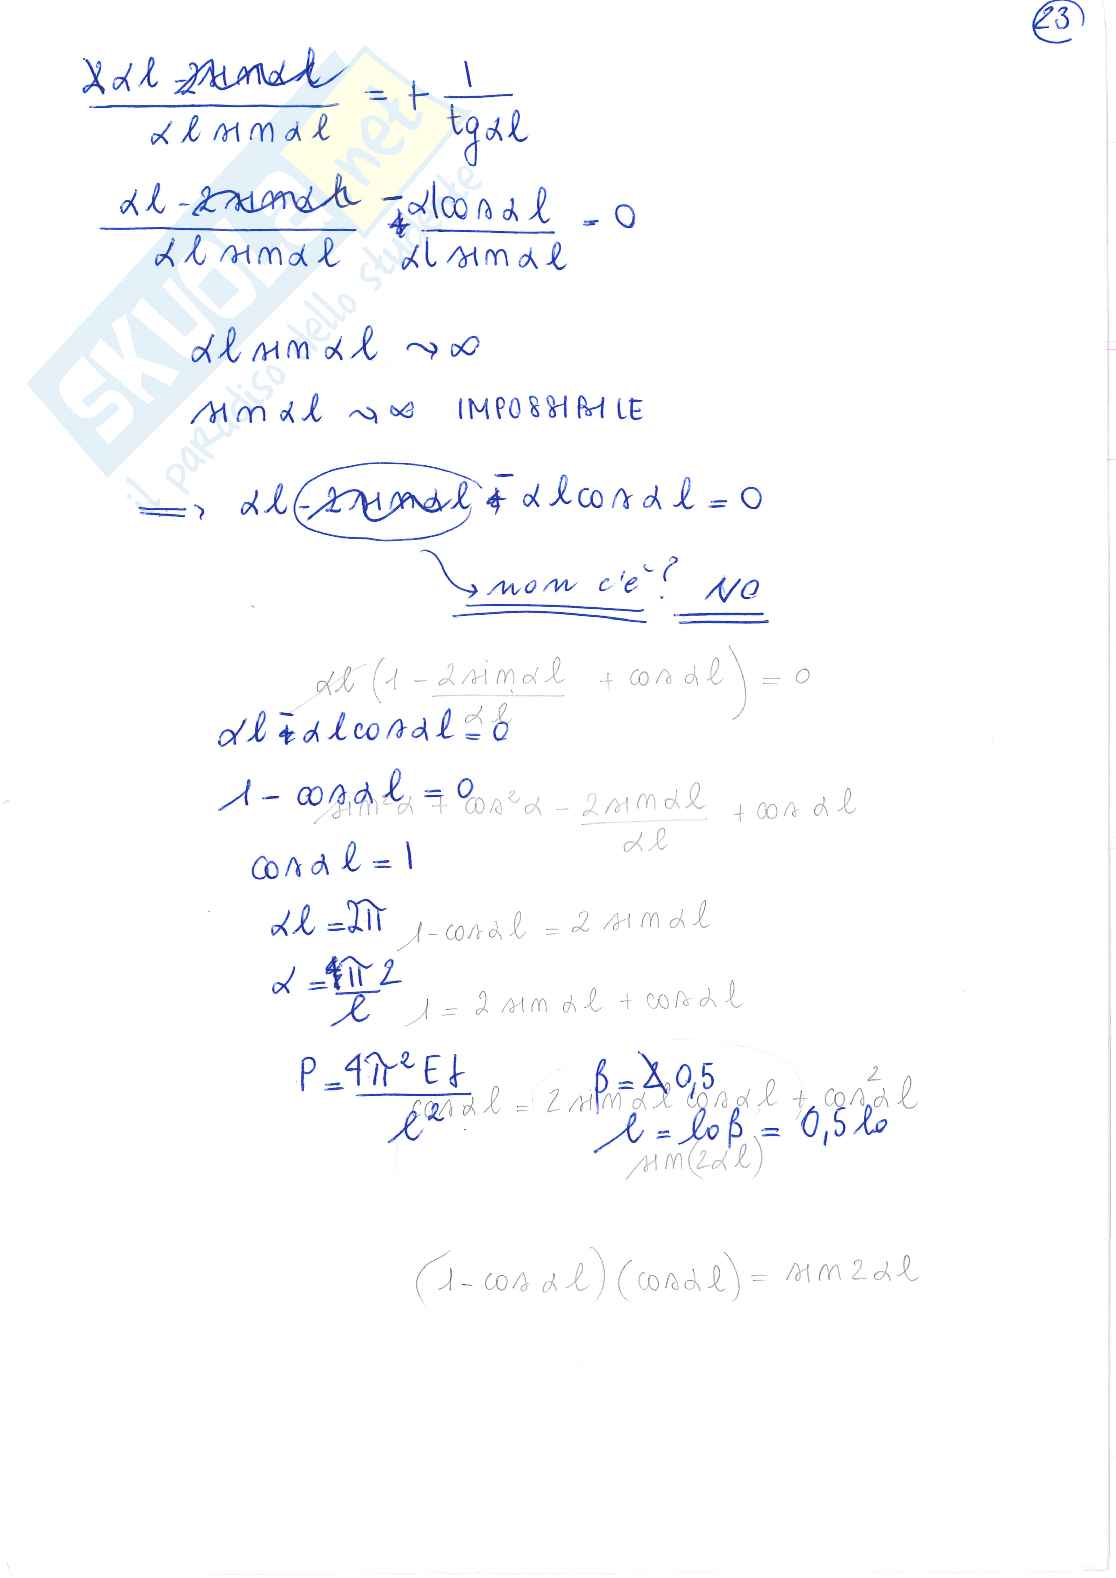 23
2αl - 2sinαl / αl sinαl = + 1 / tgαl
αl - 2sinαl / αl sinαl - αlcosαl / αl sinαl = 0
αl sinαl ~> ∞
sinαl ~> ∞ IMPOSSIBILE
=> αl - 2sinαl - αlcosαl = 0
non c'è? NO
αl (1 - 2sinαl / αl + cosαl) = 0
αl - αlcosαl = 0
1 - cosαl = 0
sin²α + cos²α - 2sinαl / αl + cosαl
cosαl = 1
αl = 2π
1 - cosαl = 2 sinαl
1 = 2 sinαl + cosαl
P = 4π²EJ / l²
β = 0,5
cosαl = 2 sinαl cosαl + cos²αl
l = l₀β = 0,5 l₀
sin(2αl)
(1 - cosαl)(cosαl) = sin2αl
SKUOLA.net
il paradiso dello studente